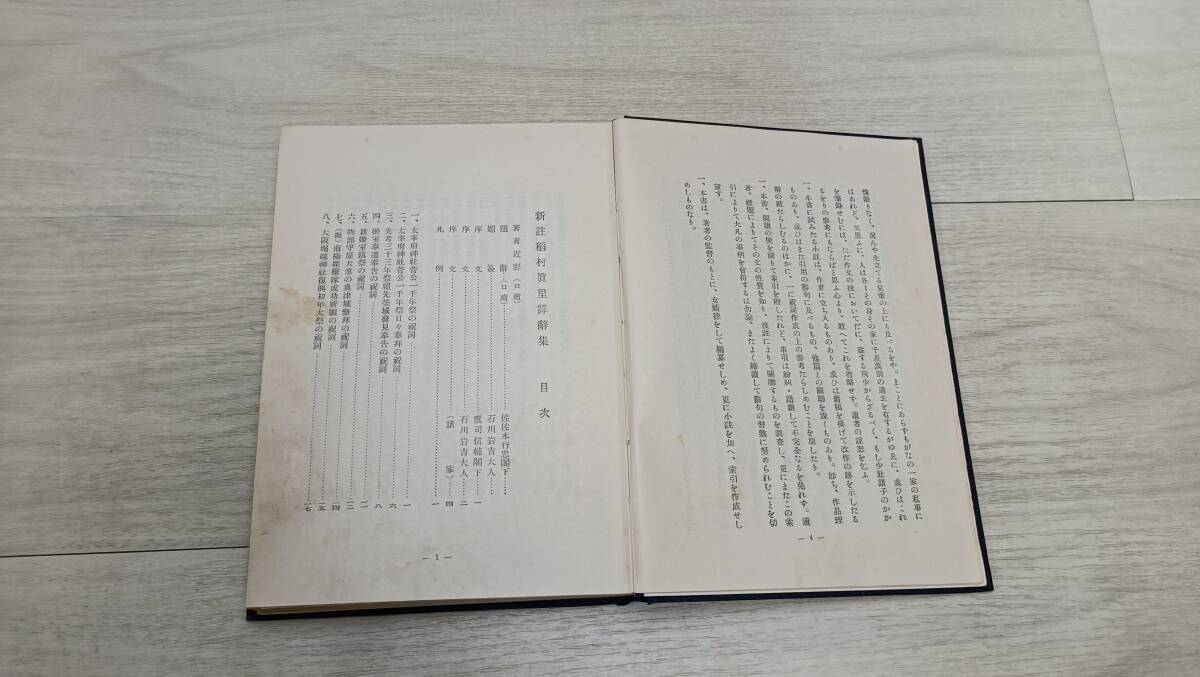 愧限りなく、況んや先立てる兄弟の上にも及べるをや。まことにあらずもがなの一家の私事に
はあれど、又思ふに、人は各〻その身その家に千差萬別の過去を有するがゆゑに、或ひはこれ
を筆録せむには、ただ作文の技においてだに、益する所少からざるべく、もし少壯諸子のかか
るをりの參考にもならばと思ふ心より、敢へてこれを省略せず。讀者の諒恕を乞ふ。
一、本書に試みたる小註は、作意に立ち入るものあり、或ひは舊稿を揭げて改作の跡を示したる
ものあり、或ひはまた引用の辭句に及べるもの、他篇との關聯を說くものあり。卽ち、作品理
解の鍵たらしむるのほかに、一に祝詞作成の上の參考たらしめむことを期したり。
一、本書、閱讀の便を圖りて索引を附したれど、事項は紛糾・錯雜して不完全なるを免れず。讀
者、標題によりてその文の性質を知り、後註によりて關聯するものを調査し、更にまたこの索
引によりて大凡の事柄を會得するは勿論、またよく熟讀して辭句の習熟に努められむことを切
望す。
一、本書は、著者の監督のもとに、女婿德をして編纂せしめ、更に小註を加へ、索引を作成せし
めしものなり。
— 4 —
新註稻村眞里諄辭集 目次
著者近影(口繪)
題辭(口繪)……佐佐木行忠閣下
題簽……石川岩吉大人
序文……鷹司信輔閣下…一
序文……石川岩吉大人…二
序文……(諸家)…四
凡例……一
一、太宰府神社菅公一千年祭の祝詞……一
二、太宰府神社菅公一千年祭日々奉拜の祝詞……六
三、先考三十三年祭祖先塋域發見奉告の祝詞……八
四、姬室奉遷奉告の祝詞……
五、新姬室鎭祭の祝詞……
六、物部守屋大連の奧津城參拜の祝詞……
七、(擬)南極探檢隊成功祈願の祝詞……
八、大阪堀越神社復興初年大祭の祝詞……一七
— 1 —